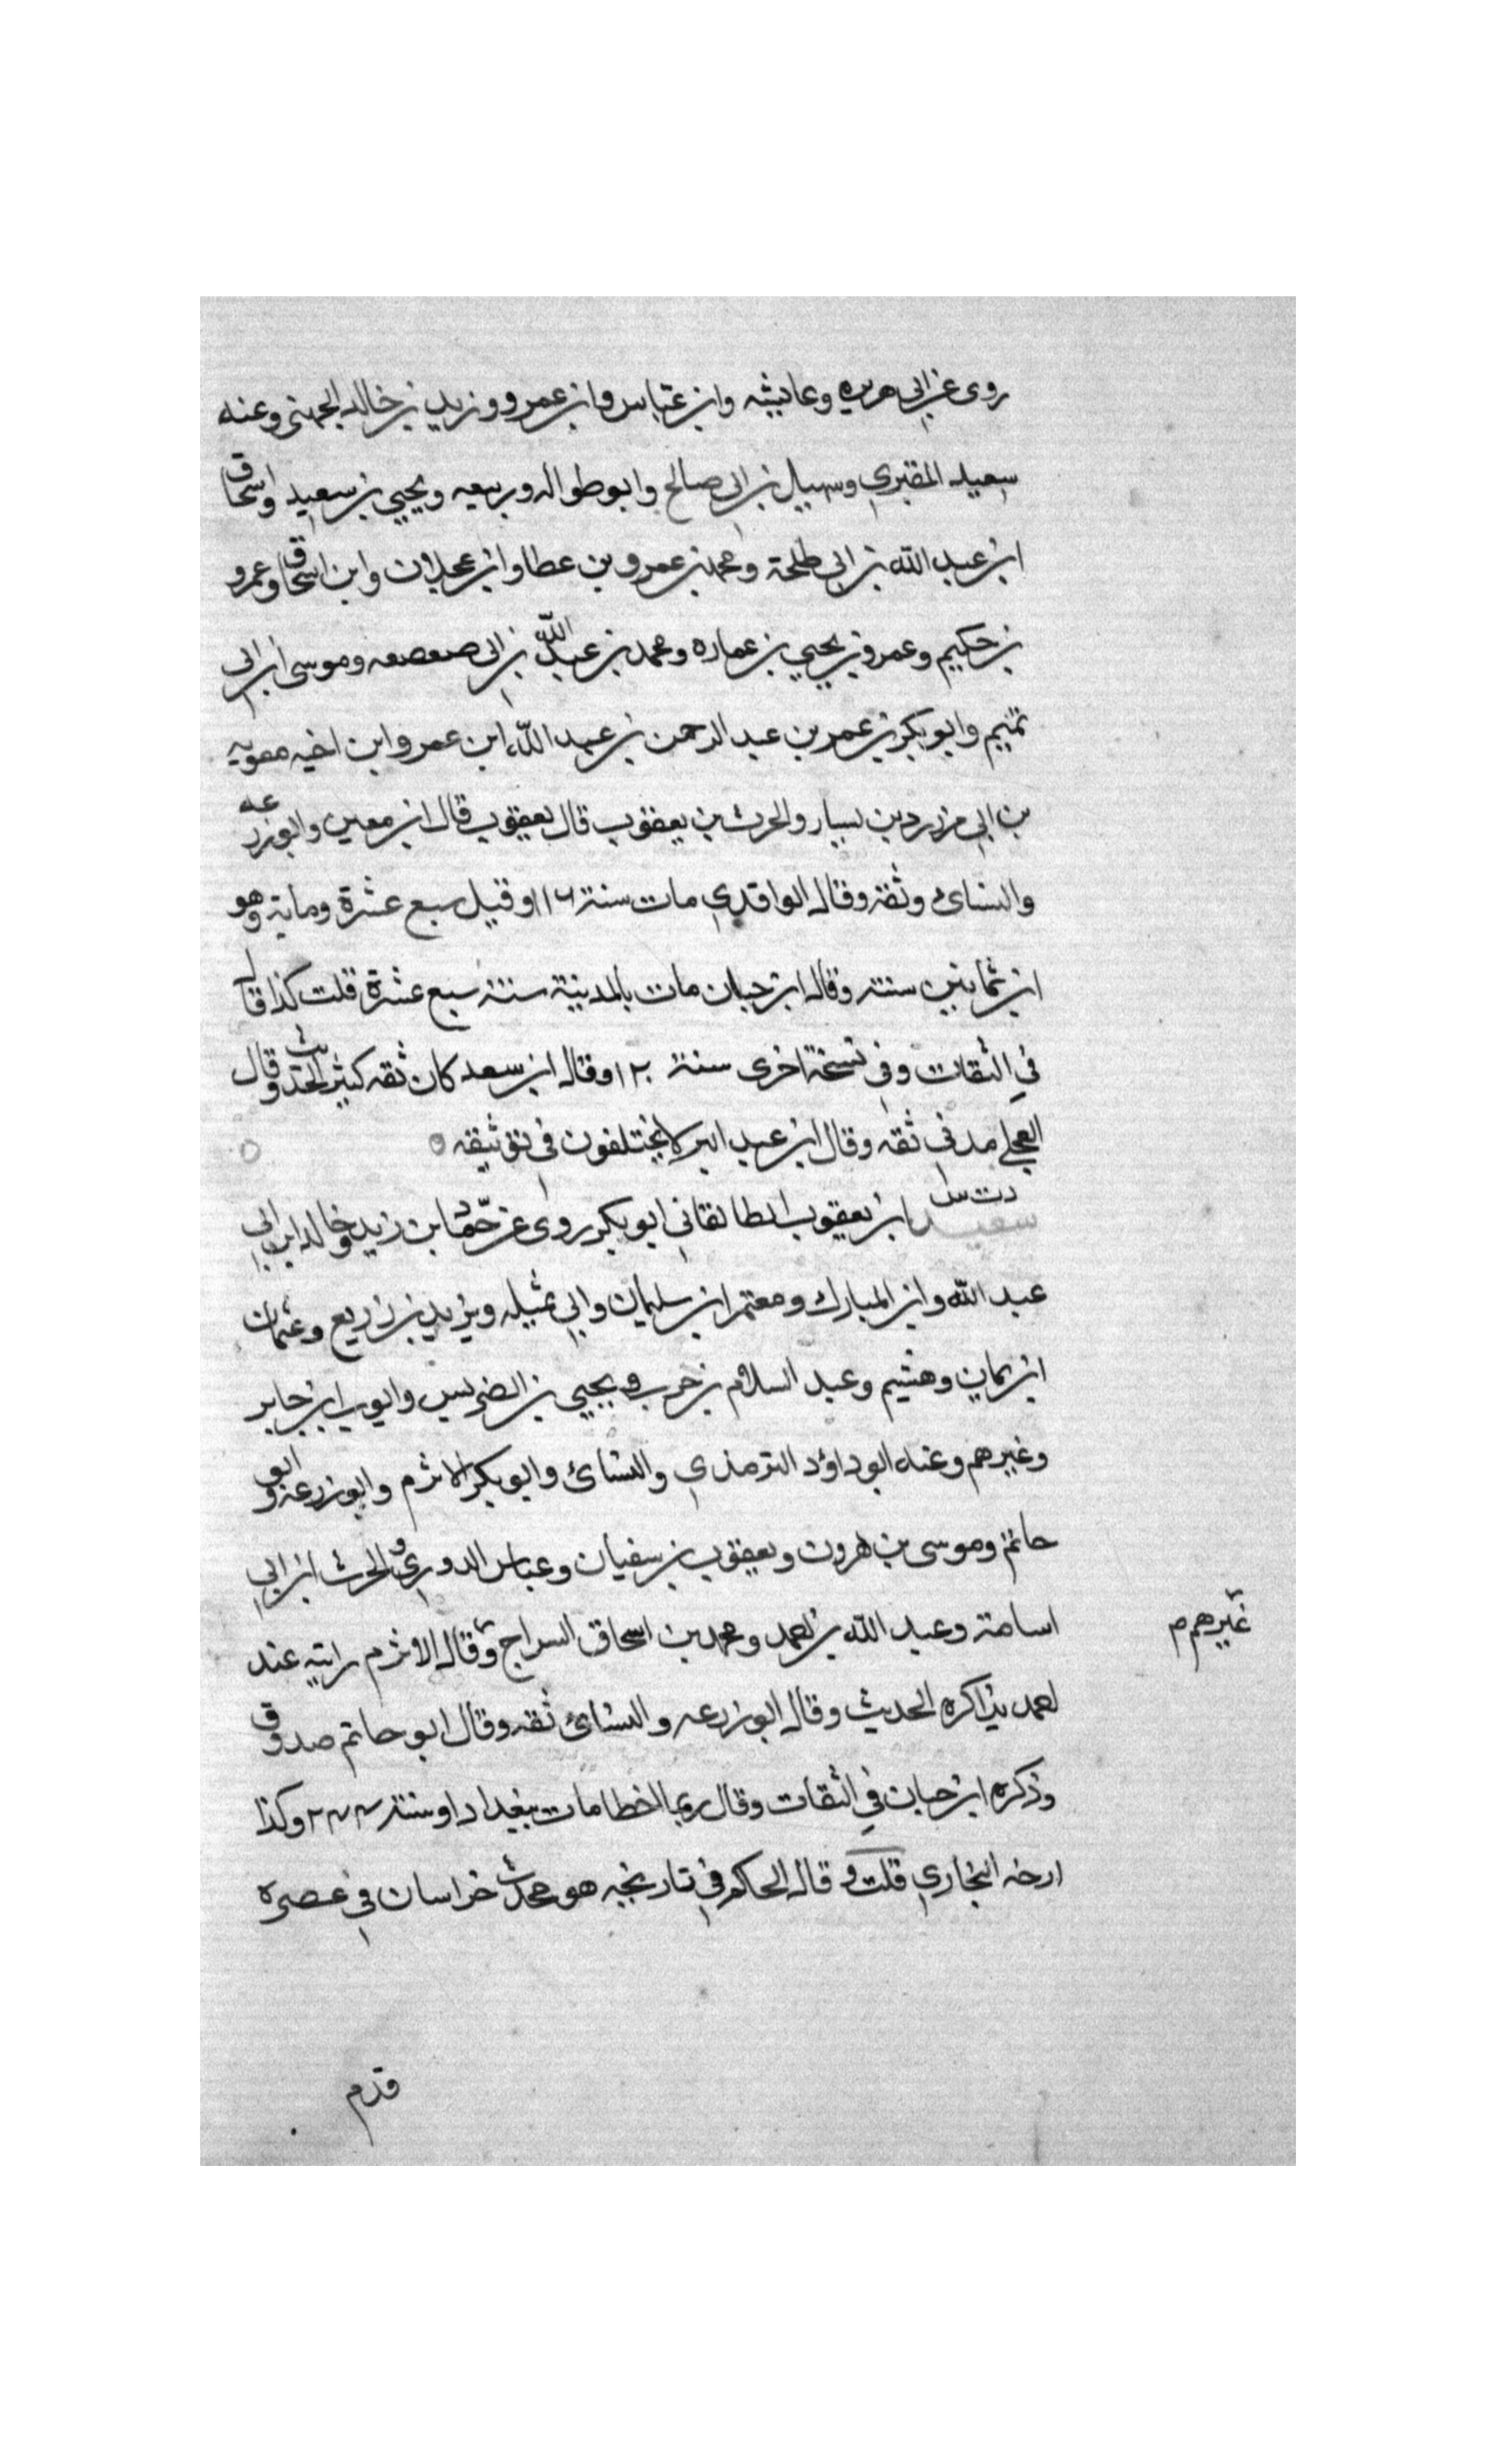 روى عن ابي هريره وعايشه وابن عباس وابن عمرو وزيد بن خالد الجهني وعنه
سعيد المقبري وسهيل بن ابي صالح وابو طواله وربيعه ويحيى بن سعيد واسحاق
ابن عبد الله بن ابي طلحة ومحمد بن عمرو بن عطا وابن عجلان وابن اسحاق وعمرو
بن حكيم وعمرو بن يحيي بن عماره ومحمد بن عبد الله بن ابي صعصعه وموسى ابن ابي
تميم وابو بكر بن عمر بن عبد الرحمن بن عبد الله ابن عمر وابن اخيه معويه
بن ابي مزرد بن يسار والحرث بن يعقوب قال يعقوب قال ابن معين وابو زرعه
والنسائ وثقه وقال الواقدي مات سنة ١١٦ وقيل سبع عشرة وماية وهو
ابن ثمانين سنة وقال ابن حبان مات بالمدينة سنة سبع عشرة قلت كذا قال
في الثقات وفي نسخة اخرى سنة ١٢٠ وقال ابن سعد كان ثقه كثير الحديث وقال
العجلي مدني ثقه وقال ابن عبد البر لا يختلفون في توثيقه
د ت س
سعيد ابن يعقوب الطالقاني ابو بكر روى عن حماد بن زيد وخالد ابن
عبد الله وابن المبارك ومعتمر ابن سليمان وابي تميله ويزيد بن زريع وعثمان
ابن يمان وهشيم وعبد السلام بن حرب ويحيي بن الضريس وايوب ابن جابر
وغيرهم وعنه ابو داؤد الترمذي والنسائ وابو بكر الاثرم وابو زرعه وابو
حاتم وموسى بن هرون ويعقوب بن سفيان وعباس الدوري والحرث ابن ابي
اسامة وعبد الله بن احمد ومحمد بن اسحاق السراج و قال الاثرم رايته عند
غيرهم م
احمد يذاكره الحديث وقال ابو زرعه والنسائ ثقه وقال ابو حاتم صدوق
وذكره ابن حبان في الثقات وقال ربما اخطا مات ببغداد سنة ٢٤٤ وكذا
ارخه البخاري قلت و قال الحاكم في تاريخه هو محدث خراسان في عصره
قدم